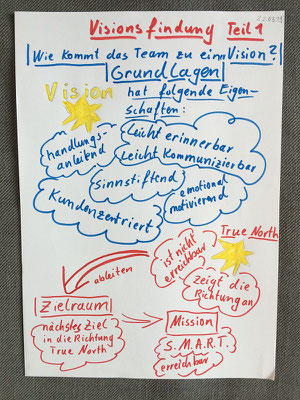 Visionsfindung Teil 1
Wie kommt das Team zu einer Vision?
Grundlagen
Vision
hat folgende Eigen-
schaften:
handlungs-
anleitend
Leicht erinnerbar
Leicht Kommunizierbar
Sinnstiftend
emotional
motivierend
Kundenzentriert
True North
ist nicht
erreichbar
zeigt die
Richtung an
ableiten
Zielraum
nächstes Ziel
in die Richtung
True North
Mission
S.M.A.R.T.
erreichbar